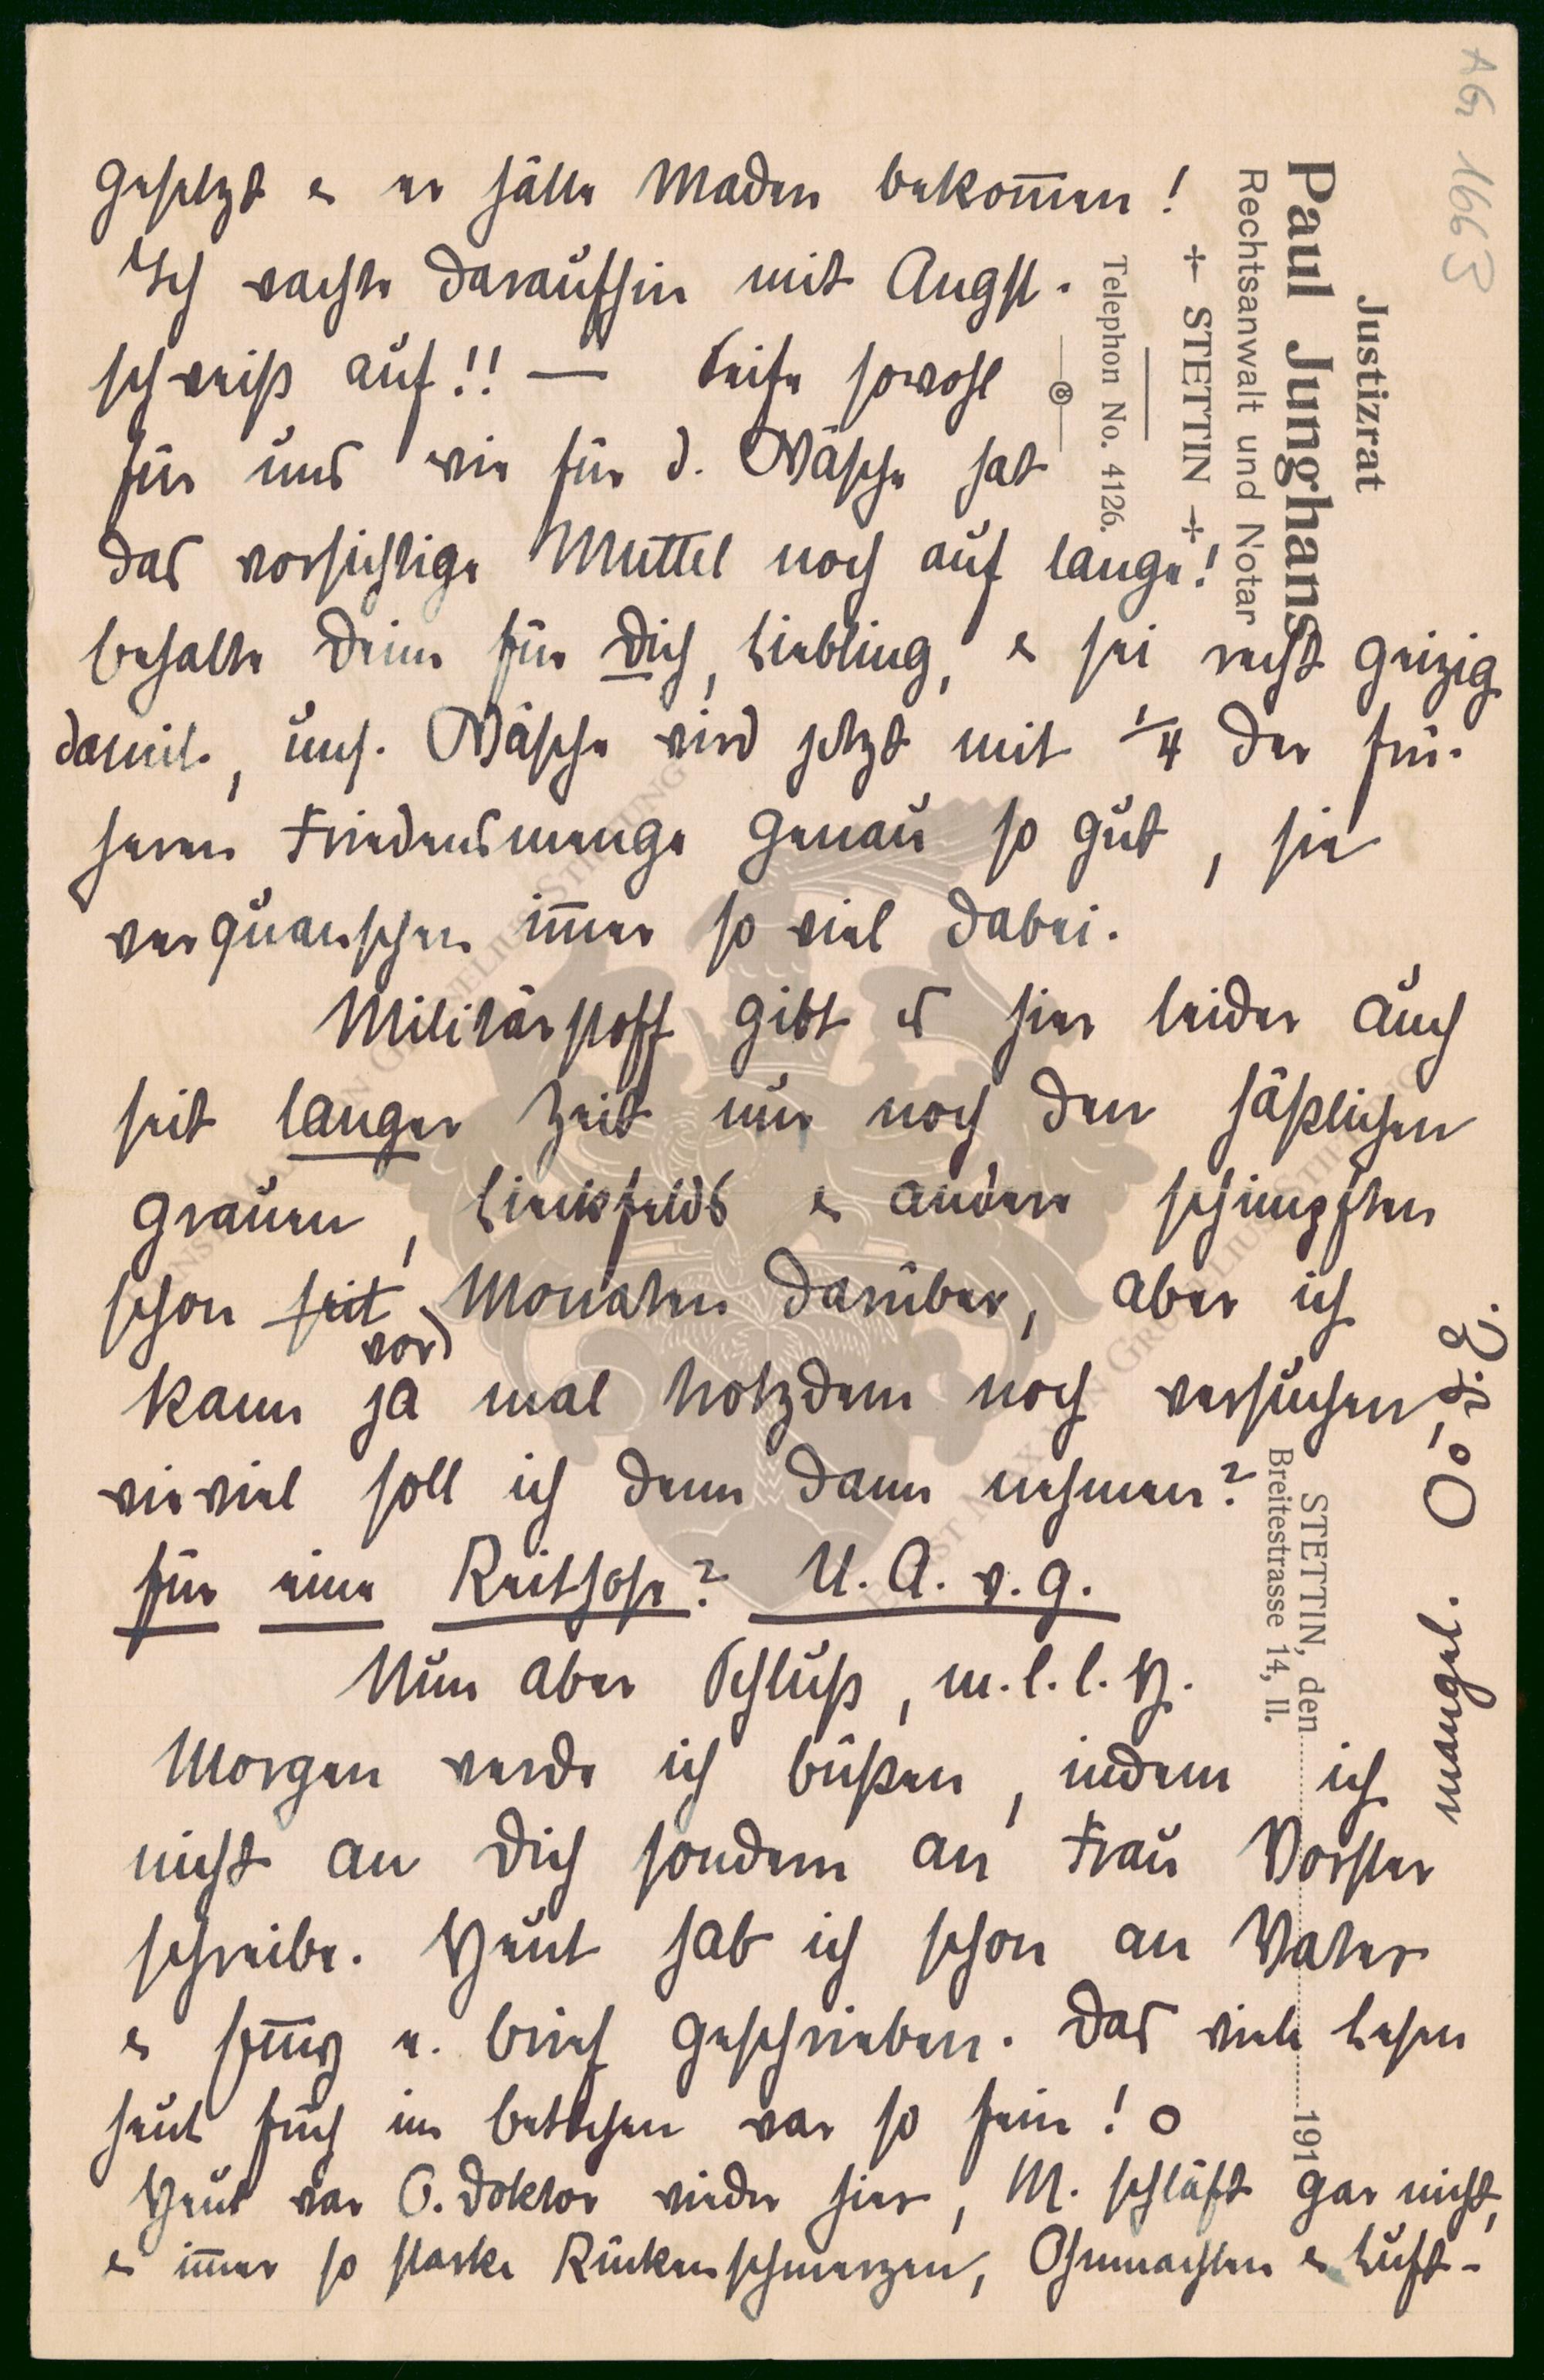 gesetzt & er hätte Maden bekom̄en!
Ich wachte daraufhin mit Angst-
schweiß auf!! — Seife sowohl
für uns wie für d. Wäsche hat
das vorsichtige Muttel noch auf lange!
behalte Deine für Dich, Liebling, & sei recht geizig
damit, uns. Wäsche wird jetzt mit 1/4 der frü-
heren Friedensmenge genau so gut, sie
verquanschen im̄er so viel dabei.
Militärstoff gibt es hier leider auch
seit langer Zeit nur noch den häßlichen
grauen, & andere schimpften
schon seit vor Monaten darüber, aber ich
kann ja mal trotzdem noch versuchen,
wieviel soll ich denn dann nehmen?
für eine Reithose? U. A. w. g.
Nun aber Schluß, m. l. l. H.
Morgen werde ich büßen, indem ich
nicht an Dich sondern an Frau Vorster
schreibe. Heut hab ich schon an Vater
& e. brief geschrieben. Das viele Lesen
heut früh im bettchen war so fein! o
Heut war O. Doktor wieder hier, M. schläft gar nicht,
& im̄er so starke Rückenschmerzen, Ohnmachten & Luft-
mangel.
Justizrat
Paul Junghans
Rechtsanwalt und Notar
STETTIN
Telephon No. 4126.
STETTIN, den 191
Breitestrasse 14, II.
AGr 1663
ERNST MAX VON GRUNELIUS-STIFTUNG